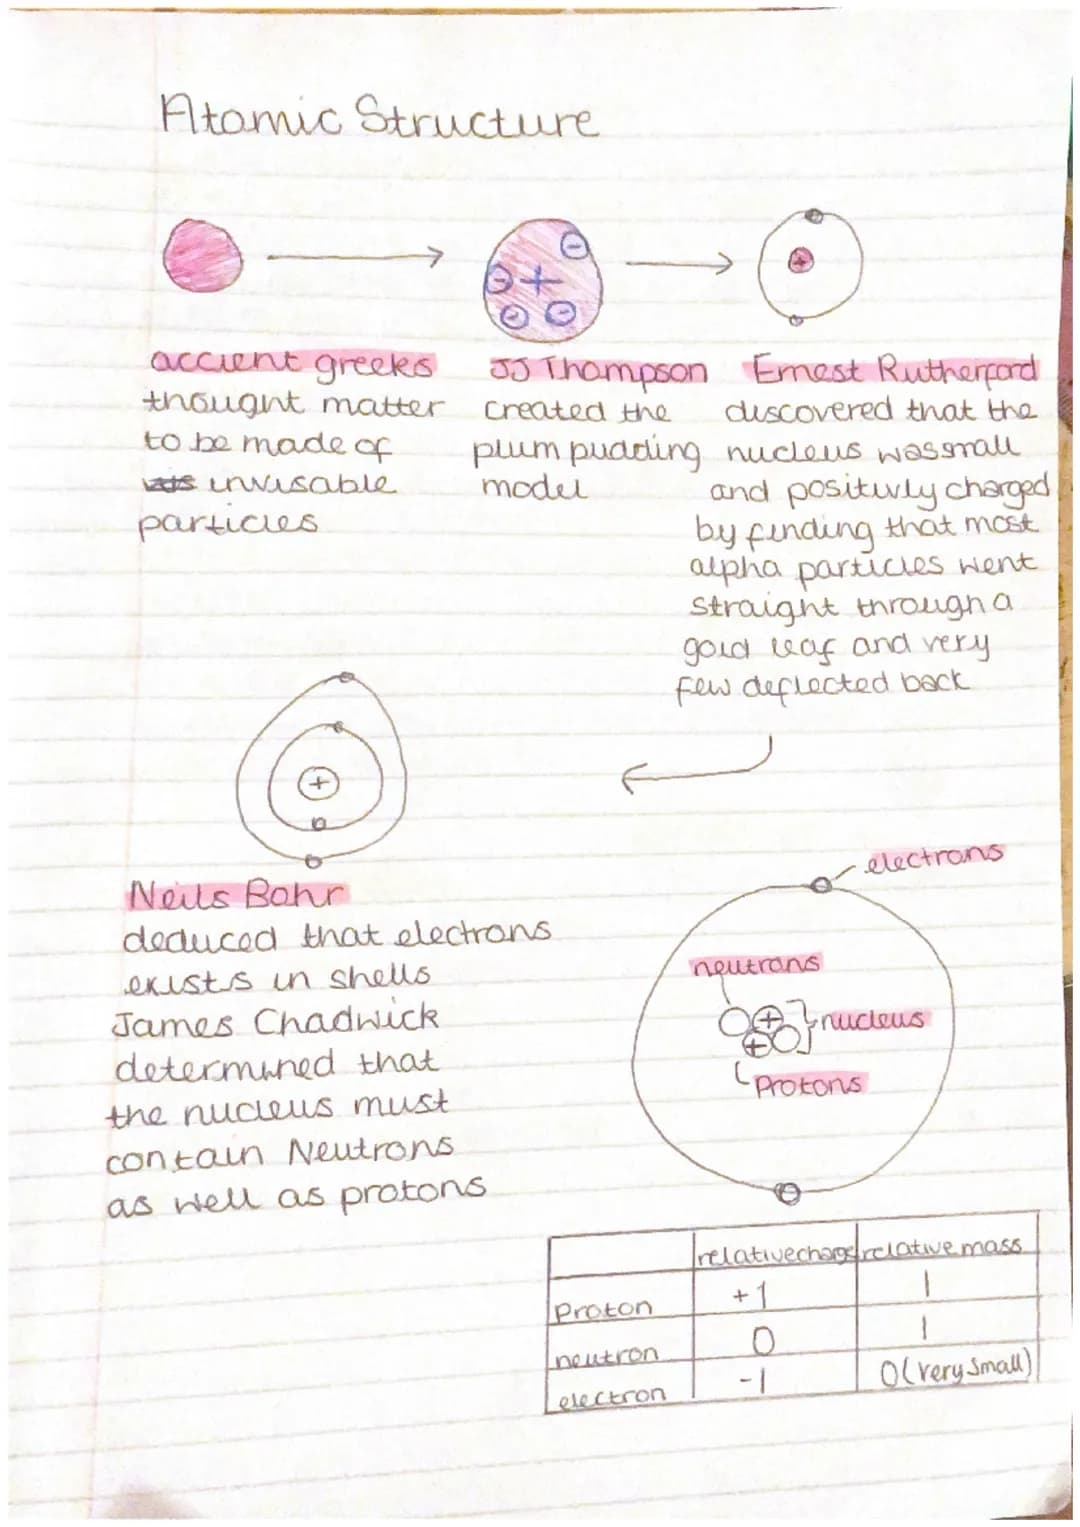 Atomic Structure
accient greeks
thought matter
to be made of
invisable
particles
JJ Thompson
created the
plum pudding
model
Ernest Rutherford
discovered that the
nucleus was small
and positivly charged
by finding that most
alpha particles went
straight through a
gold leaf and very
few deflected back
Neils Bohr
deduced that electrons
exists in shells
James Chadwick
determined that
the nucleus must
contain Neutrons
as well as protons
electrons
neutrons
nucleus
Protons
relative charge relative mass
proton +1 1
neutron 0 1
electron -1 0 (very small)